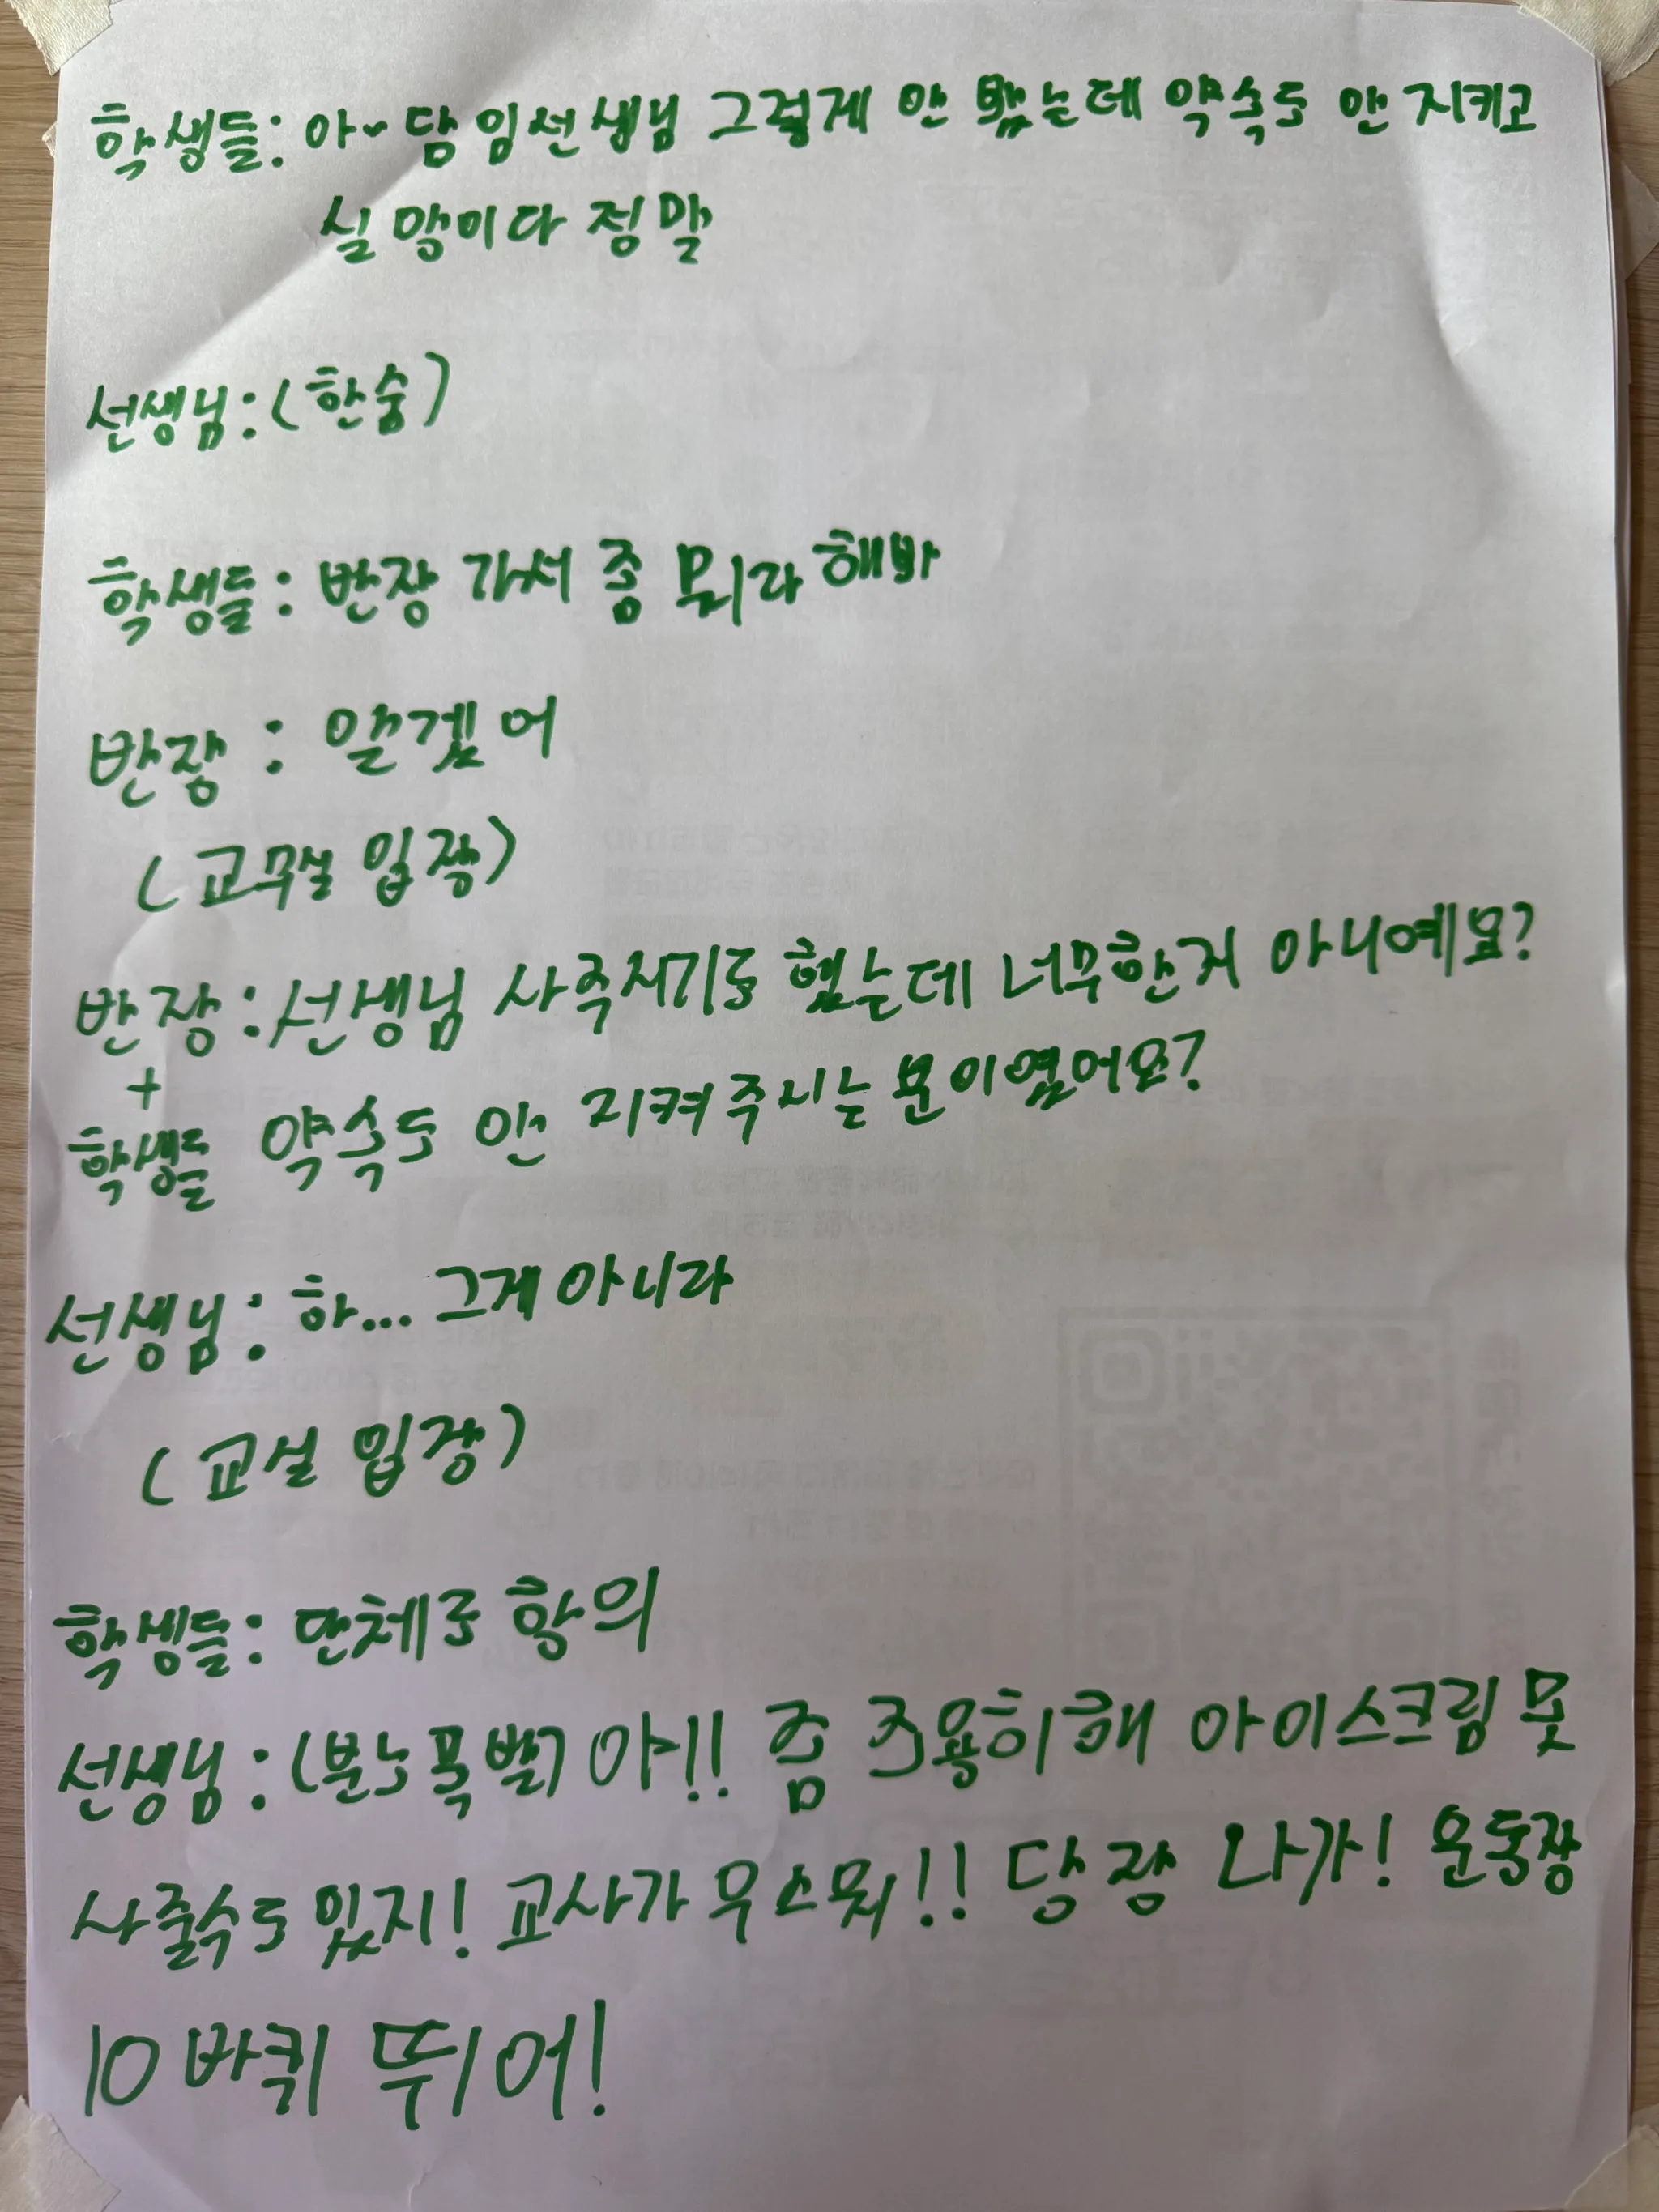 학생들: 아~ 담임선생님 그렇게 안 봤는데 약속도 안 지키고
실망이다 정말
선생님: (한숨)
학생들: 반장 가서 좀 뭐라 해봐
반장 : 알겠어
(교무실 입장)
반장: 선생님 사주시기로 했는데 너무한거 아니예요?
+
학생들 약속도 안 지켜주시는 분이였어요?
선생님: 하... 그게 아니라
(교실 입장)
학생들: 단체로 항의
선생님: (분노 폭발) 야!! 좀 조용히해 아이스크림 못
사줄수도 있지! 교사가 우스워!! 당장 나가! 운동장
10바퀴 뛰어!